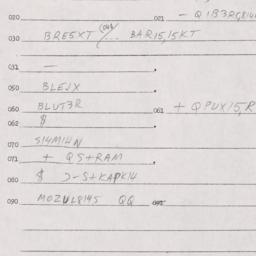 020 021 - Q1B3RG814
030 BRE5XT / ... BAR15,15KT
031 —
050 BLEJX
060 BLUT3R 061 + QPUX/5,R
062 $
070 S14M14N
071 + QS+RAM
080 $ >-S+KAPK14
090 MOZUL8145 QQ